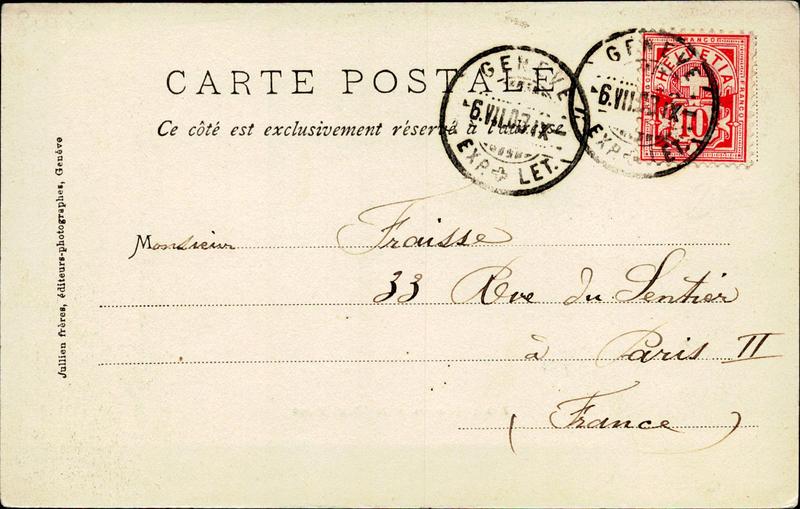 CARTE POSTALE
Ce côté est exclusivement réservé à l'adresse
GENÈVE 1
6.VII.03.IX
EXP. LET.
GENÈVE 1
6.VII.03.IX
EXP. LET.
FRANCO
HELVETIA
10
Monsieur Fraisse
33 Rue du Sentier
à Paris II
(France)
Jullien frères, éditeurs-photographes, Genève